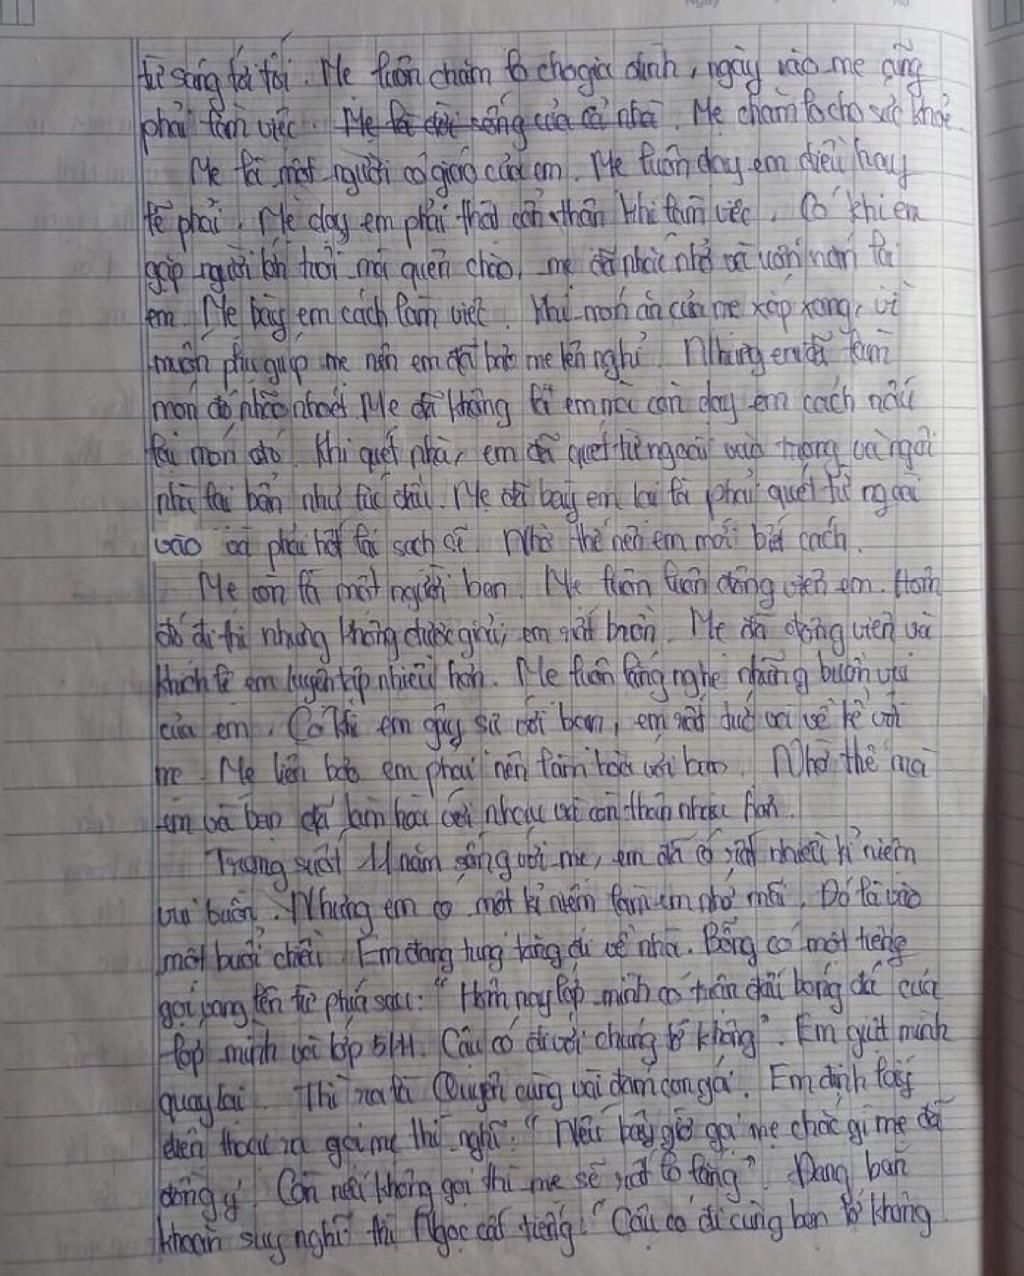 từ sáng tới tối. Mẹ luôn chăm lo cho gia đình, ngày nào mẹ cũng
phải làm việc. Mẹ là đời sống của cả nhà. Mẹ chăm lo cho sức khỏe.
Mẹ là một người cô giáo của em. Mẹ luôn dạy em điều hay
lẽ phải. Mẹ dạy em phải thật cẩn thận khi làm việc. Có khi em
gặp người lớn tuổi mà quên chào, mẹ đã nhắc nhở và uốn nắn lại
em. Mẹ bày em cách làm việc. Khi món ăn của mẹ xắp xong, vì
muốn phụ giúp mẹ nên em đã bảo mẹ lên nghỉ. Nhưng em đã làm
món đó nhão nhoét. Mẹ đã không la em mà còn dạy em cách nấu
lại món đó. Khi quét nhà, em đã quét từ ngoài vào trong và ngôi
nhà lại bẩn như lúc đầu. Mẹ đã bày em lại là phải quét từ ngoài
vào và phải hốt lại sạch sẽ. Nhờ thế nên em mới biết cách.
Mẹ còn là một người bạn. Mẹ luôn luôn động viên em. Hôm
đó đi thi nhưng không được giải, em rất buồn. Mẹ đã động viên và
khích lệ em luyện tập nhiều hơn. Mẹ luôn lắng nghe những buồn vui
của em. Có khi em gây sự với bạn, em rất và về kể với
mẹ. Mẹ liền bảo em phải nên làm hoà với bạn. Nhờ thế mà
em và bạn đã làm hoà với nhau và còn thân nhau hơn.
Trong suốt 11 năm sống với mẹ, em đã có rất nhiều kỉ niệm
vui buồn. Nhưng em có một kỉ niệm làm em nhớ mãi. Đó là vào
một buổi chiều. Em đang tung tăng đi về nhà. Bỗng có một tiếng
gọi vang lên từ phía sau: "Hôm nay lớp mình có trận đấu bóng đá của
lớp mình với lớp 5/11. Cậu có đi với chúng tớ không". Em giật mình
quay lại. Thì ra là Quyên cùng vài đám con gái. Em định lấy
điện thoại ra gọi mẹ thì nghĩ: "Nếu bây giờ gọi mẹ chắc gì mẹ đã
đồng ý. Còn nếu không gọi thì mẹ sẽ rất lo lắng". Đang băn
khoăn suy nghĩ thì Ngọc cất tiếng: "Cậu có đi cùng bọn tớ không